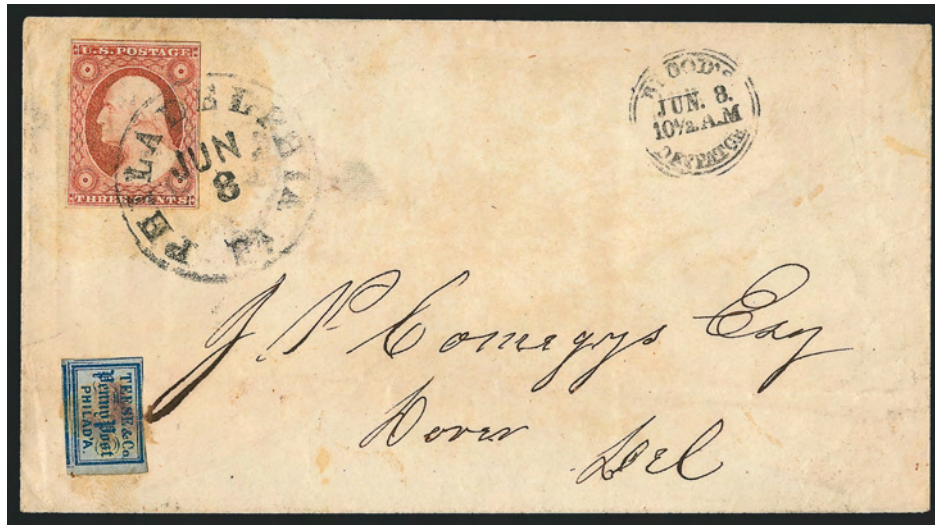 U.S. POSTAGE
THREE CENTS
PHILADELPHIA Pa
JUN
8
BLOOD'S
JUN. 8.
10½ A.M
DESPATCH
J. P. Comegys Esq
Dover
Del
TEESE & Co.
Penny Post
PHILADA.